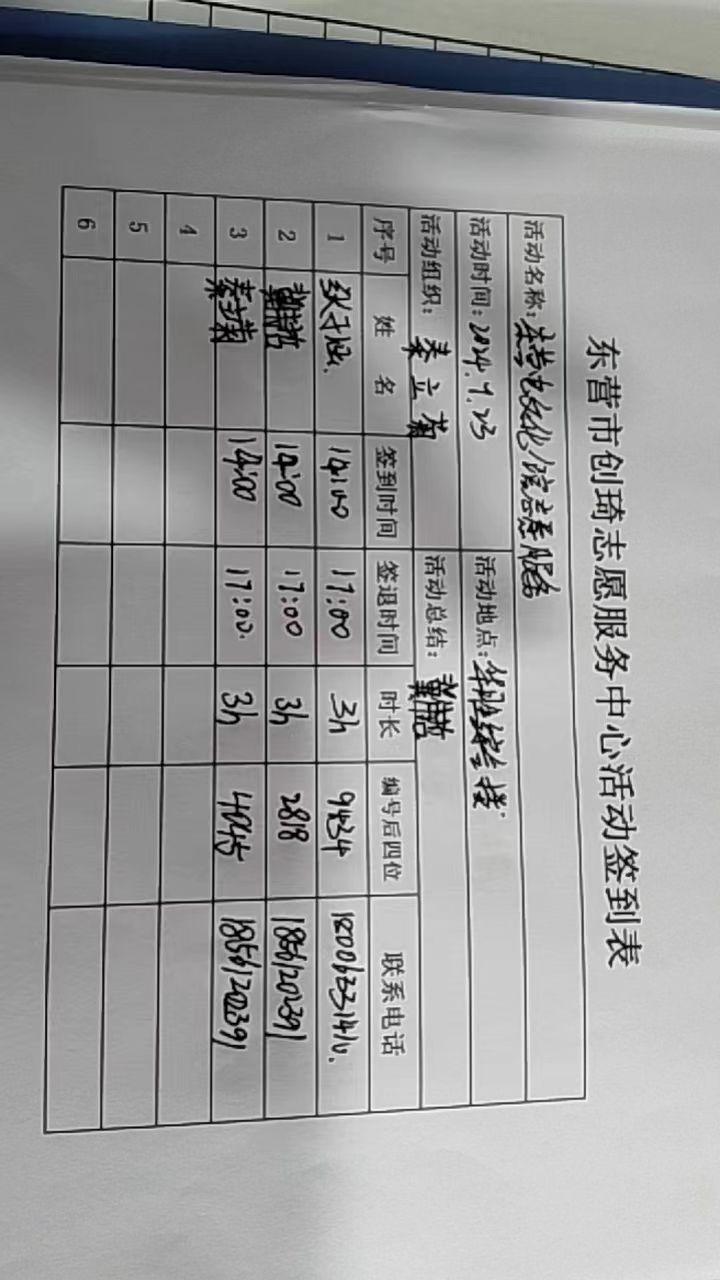 东营市创琦志愿服务中心活动签到表
活动名称：东营市文化馆志愿服务
活动时间：2024.7.23 活动地点：综合楼
活动组织：秦立菊 活动总结：
序号 姓名 签到时间 签退时间 时长 编号后四位 联系电话
1 14:00 17:00 3h 9434
2 14:00 17:00 3h 2818 18561202391
3 秦立菊 14:00 17:00. 3h 4045 18561202391
4
5
6